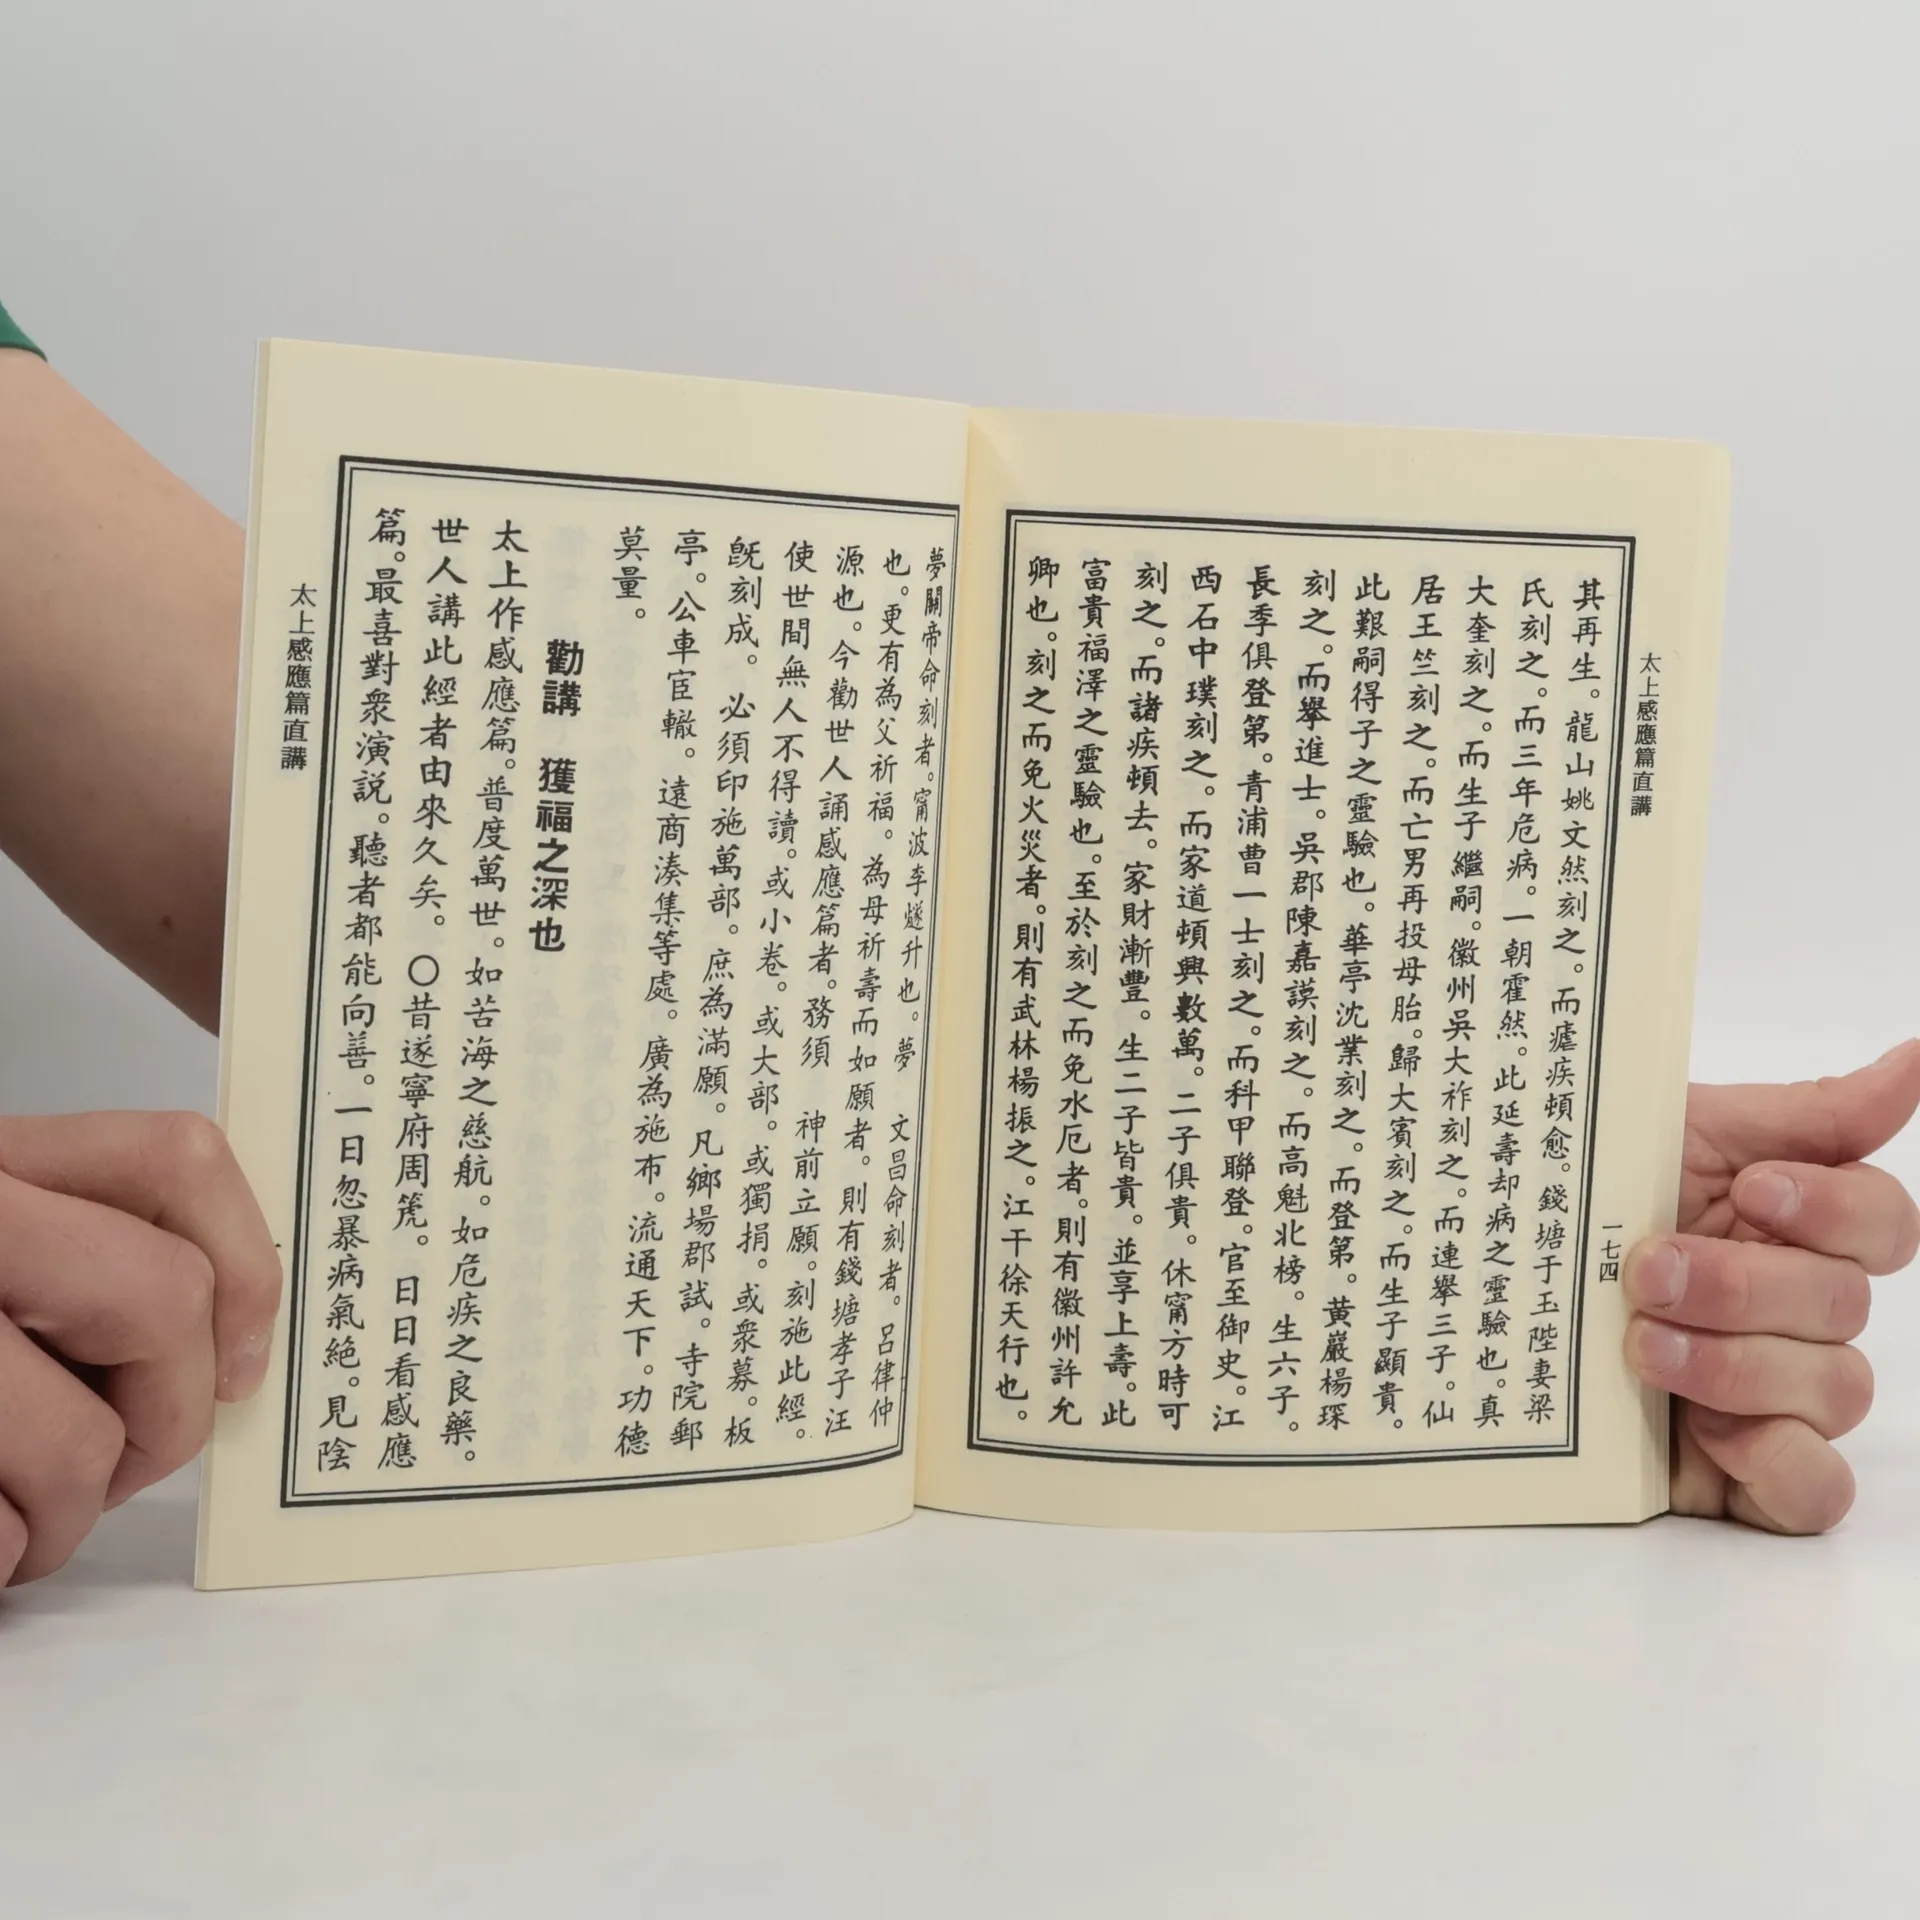 太上感應篇直講
一七四
其再生。龍山姚文然刻之。而瘧疾頓愈。錢塘于玉陛妻梁
氏刻之。而三年危病。一朝霍然。此延壽却病之靈驗也。真
大奎刻之。而生子繼嗣。徽州吳大祚刻之。而連舉三子。仙
居王竺刻之。而亡男再投母胎。歸大賓刻之。而生子顯貴。
此艱嗣得子之靈驗也。華亭沈業刻之。而登第。黃巖楊琛
刻之。而舉進士。吳郡陳嘉謨刻之。而高魁北榜。生六子。
長季俱登第。青浦曹一士刻之。而科甲聯登。官至御史。江
西石中璞刻之。而家道頓興數萬。二子俱貴。休甯方時可
刻之。而諸疾頓去。家財漸豐。生二子皆貴。並享上壽。此
富貴福澤之靈驗也。至於刻之而免水厄者。則有徽州許允
卿也。刻之而免火災者。則有武林楊振之。江干徐天行也。
夢關帝命刻者。甯波李燧升也。夢 文昌命刻者。呂律仲
也。更有為父祈福。為母祈壽而如願者。則有錢塘孝子汪
源也。今勸世人誦感應篇者。務須 神前立願。刻施此經。
使世間無人不得讀。或小卷。或大部。或獨捐。或眾募。板
既刻成。必須印施萬部。庶為滿願。凡鄉場郡試。寺院郵
亭。公車宦轍。遠商湊集等處。廣為施布。流通天下。功德
莫量。
勸講 獲福之深也
太上作感應篇。普度萬世。如苦海之慈航。如危疾之良藥。
世人講此經者由來久矣。〇昔遂寧府周箎。日日看感應
篇。最喜對衆演説。聽者都能向善。一日忽暴病氣絕。見陰
太上感應篇直講